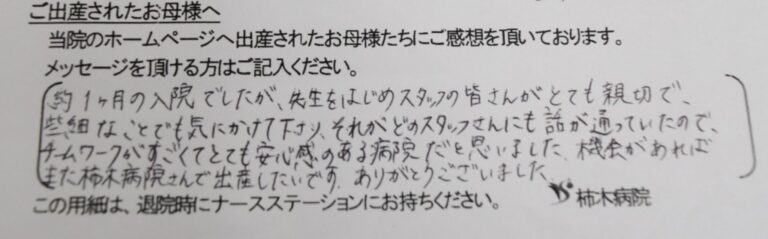 ご出産されたお母様へ
当院のホームページへ出産されたお母様たちにご感想を頂いております。
メッセージを頂ける方はご記入ください。
約1ヶ月の入院でしたが、先生をはじめスタッフの皆さんがとても親切で、
些細なことでも気にかけて下さり、それがどのスタッフさんにも話が通っていたので、
チームワークがすごくてとても安心感のある病院だと思いました。機会があれば
また柿木病院さんで出産したいです。ありがとうございました。
この用紙は、退院時にナースステーションにお持ちください。 柿木病院